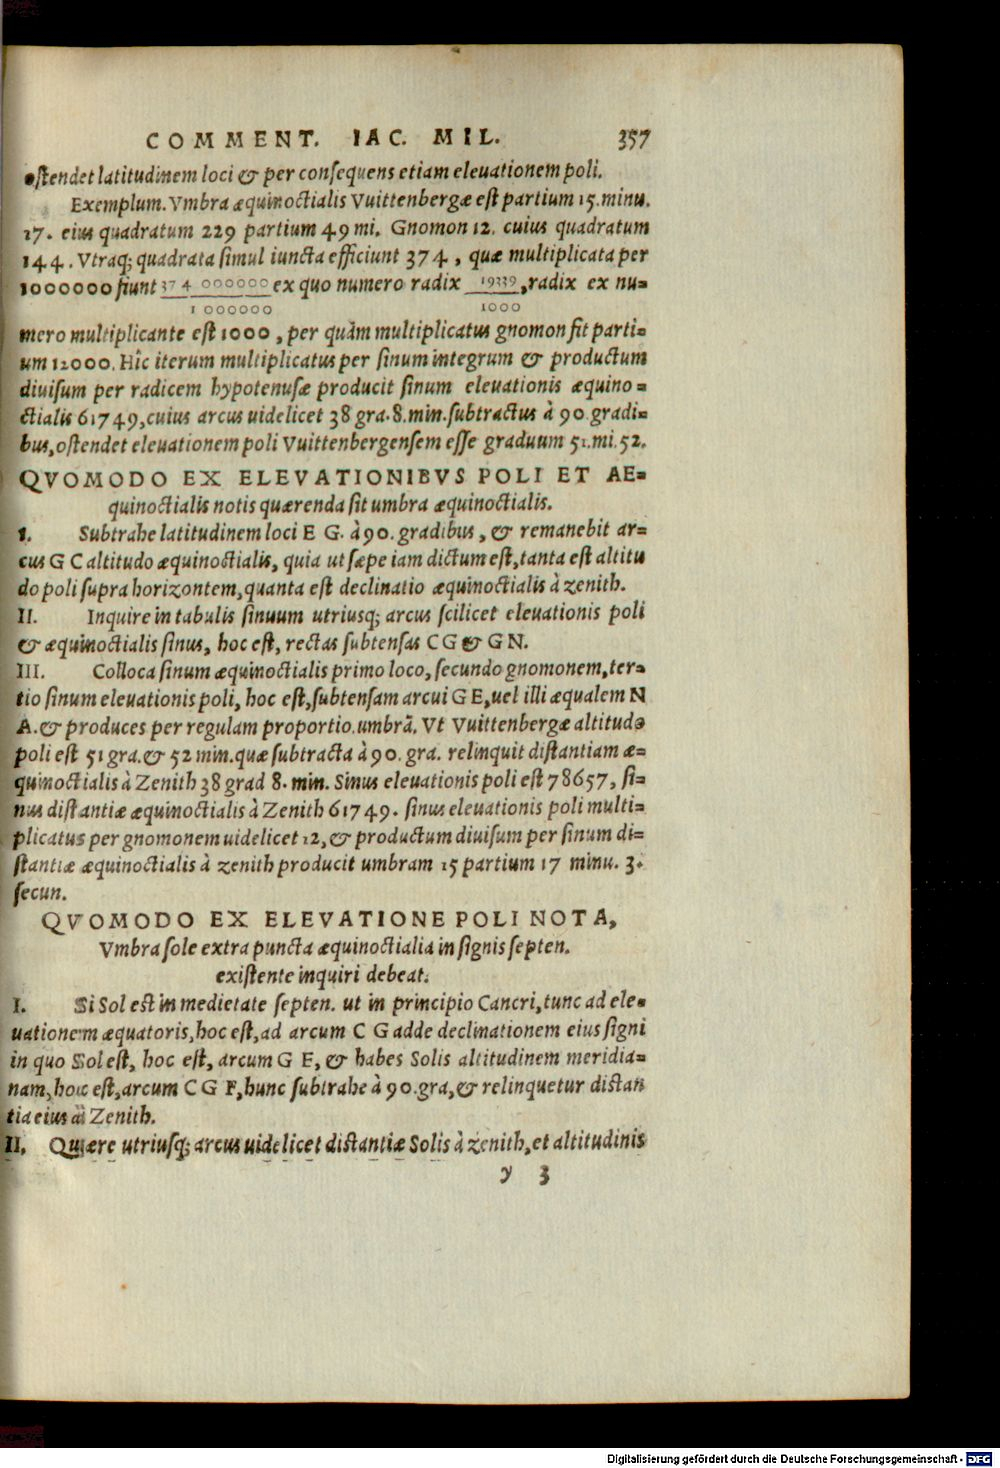 COMMENT. IAC. MIL. 357
ostendet latitudinem loci & per consequens etiam eleuationem poli.
Exemplum. Vmbra æquinoctialis Vuittenbergæ est partium 15. minu.
17. eius quadratum 229 partium 49 mi. Gnomon 12. cuius quadratum
144. Vtraq; quadrata simul iuncta efficiunt 374, quæ multiplicata per
1000000 fiunt 374 000000 ex quo numero radix 19339, radix ex nu=
1 000000 1000
mero multiplicante est 1000, per quàm multiplicatus gnomon fit parti=
um 12000. Hîc iterum multiplicatus per sinum integrum & productum
diuisum per radicem hypotenusæ producit sinum eleuationis æquino=
ctialis 61749, cuius arcus uidelicet 38 gra. 8. min. subtractus à 90. gradi=
bus, ostendet eleuationem poli Vuittenbergensem esse graduum 51. mi. 52.
QVOMODO EX ELEVATIONIBVS POLI ET AE=
quinoctialis notis quærenda sit umbra æquinoctialis.
I. Subtrahe latitudinem loci E G. à 90. gradibus, & remanebit ar=
cus G C altitudo æquinoctialis, quia ut sæpe iam dictum est, tanta est altitu
do poli supra horizontem, quanta est declinatio æquinoctialis à zenith.
II. Inquire in tabulis sinuum utriusq; arcus scilicet eleuationis poli
& æquinoctialis sinus, hoc est, rectas subtensas C G & G N.
III. Colloca sinum æquinoctialis primo loco, secundo gnomonem, ter=
tio sinum eleuationis poli, hoc est, subtensam arcui G E, uel illi æqualem N
A. & produces per regulam proportio. umbrā. Vt Vuittenbergæ altitudo
poli est 51 gra. & 52 min. quæ subtracta à 90. gra. relinquit distantiam æ=
quinoctialis à Zenith 38 grad 8. min. Sinus eleuationis poli est 78657, si=
nus distantiæ æquinoctialis à Zenith 61749. sinus eleuationis poli multi=
plicatus per gnomonem uidelicet 12, & productum diuisum per sinum di=
stantiæ æquinoctialis à zenith producit umbram 15 partium 17 minu. 3.
secun.
QVOMODO EX ELEVATIONE POLI NOTA,
Vmbra sole extra puncta æquinoctialia in signis septen.
existente inquiri debeat.
I. Si Sol est in medietate septen. ut in principio Cancri, tunc ad ele=
uationem æquatoris, hoc est, ad arcum C G adde declinationem eius signi
in quo Sol est, hoc est, arcum G F, & habes Solis altitudinem meridia=
nam, hoc est, arcum C G F, hunc subtrahe à 90. gra, & relinquetur distan
tia eius à Zenith.
II. Quære utriusq; arcus uidelicet distantiæ Solis à zenith, et altitudinis
y 3
Digitalisierung gefördert durch die Deutsche Forschungsgemeinschaft - DFG